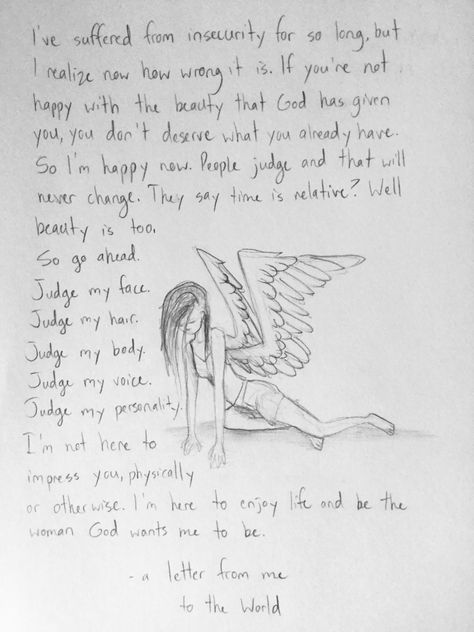 I've suffered from insecurity for so long, but
I realize now how wrong it is. If you're not
happy with the beauty that God has given
you, you don't deserve what you already have.
So I'm happy now. People judge and that will
never change. They say time is relative? Well
beauty is too.
So go ahead.
Judge my face.
Judge my hair.
Judge my body.
Judge my voice.
Judge my personality.
I'm not here to
impress you, physically
or otherwise. I'm here to enjoy life and be the
woman God wants me to be.
- a letter from me
to the World